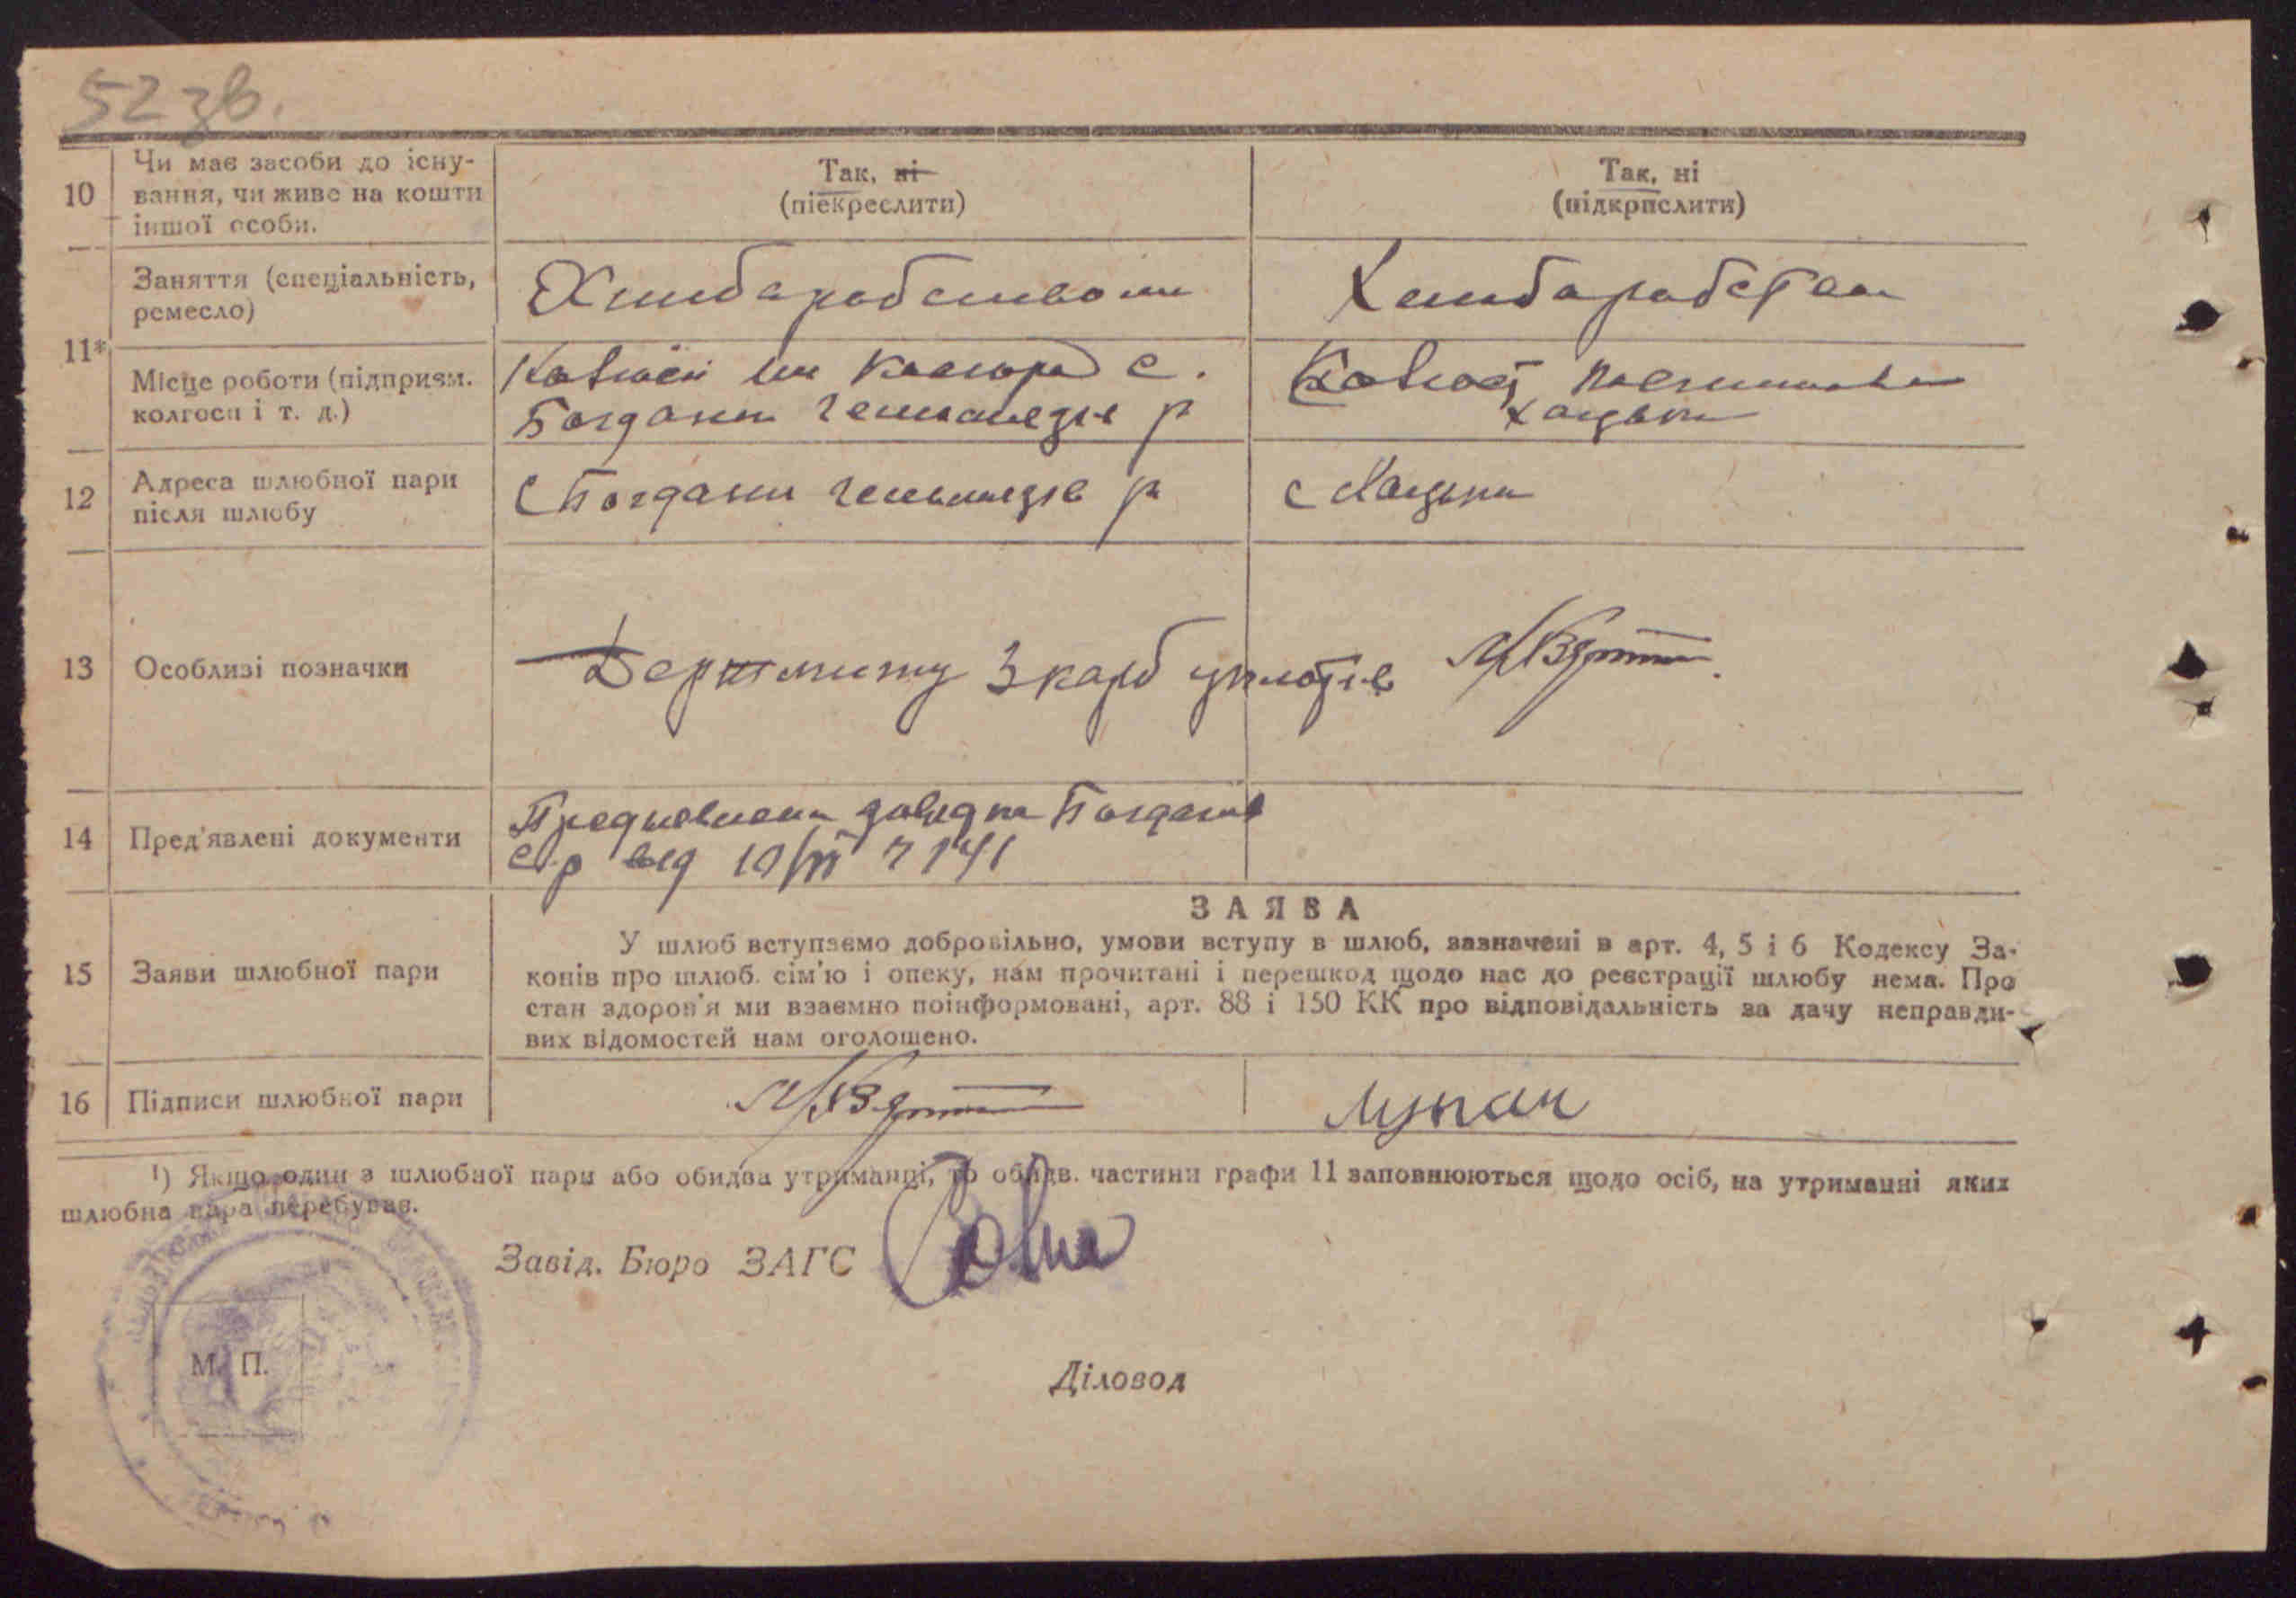 52 зв.
10
Чи має засоби до існу-
вання, чи живе на кошти
іншої особи.
Так, ні
(піекреслити)
Так, ні
(підкрпслити)
11*
Заняття (спеціальність,
ремесло)
Хлибаробством
Хлибаробством
Місце роботи (підпризм.
колгосп і т. д.)
с.
Богдани р
12
Адреса шлюбної пари
після шлюбу
с Богдани р
с
13
Особлизі позначки
Держмиту 3 карб
14
Пред'явлені документи
довидка
с/р від 10/III 141
15
Заяви шлюбної пари
ЗАЯВА
У шлюб вступаємо добровільно, умови вступу в шлюб, зазначені в арт. 4, 5 і 6 Кодексу За-
конів про шлюб. сім'ю і опеку, нам прочитані і перешкод щодо нас до реєстрації шлюбу нема. Про
стан здоров'я ми взаємно поінформовані, арт. 88 і 150 КК про відповідальність за дачу неправди-
вих відомостей нам оголошено.
16
Підписи шлюбної пари
Лупан
¹) Якщо один з шлюбної пари або обидва утриманці, то обидв. частини графи 11 заповнюються щодо осіб, на утриманні яких
шлюбна пара перебуває.
Завід. Бюро ЗАГС
М. П.
Діловод